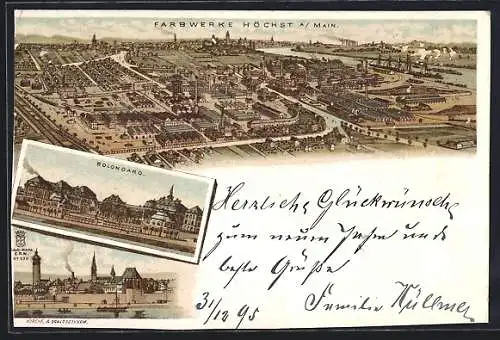 FARBWERKE HÖCHST A/MAIN.
BOLONGARO.
Herzliche Glückwünsche
zum neuen Jahre und
beste Grüße
31/12 95 Familie Küllmer